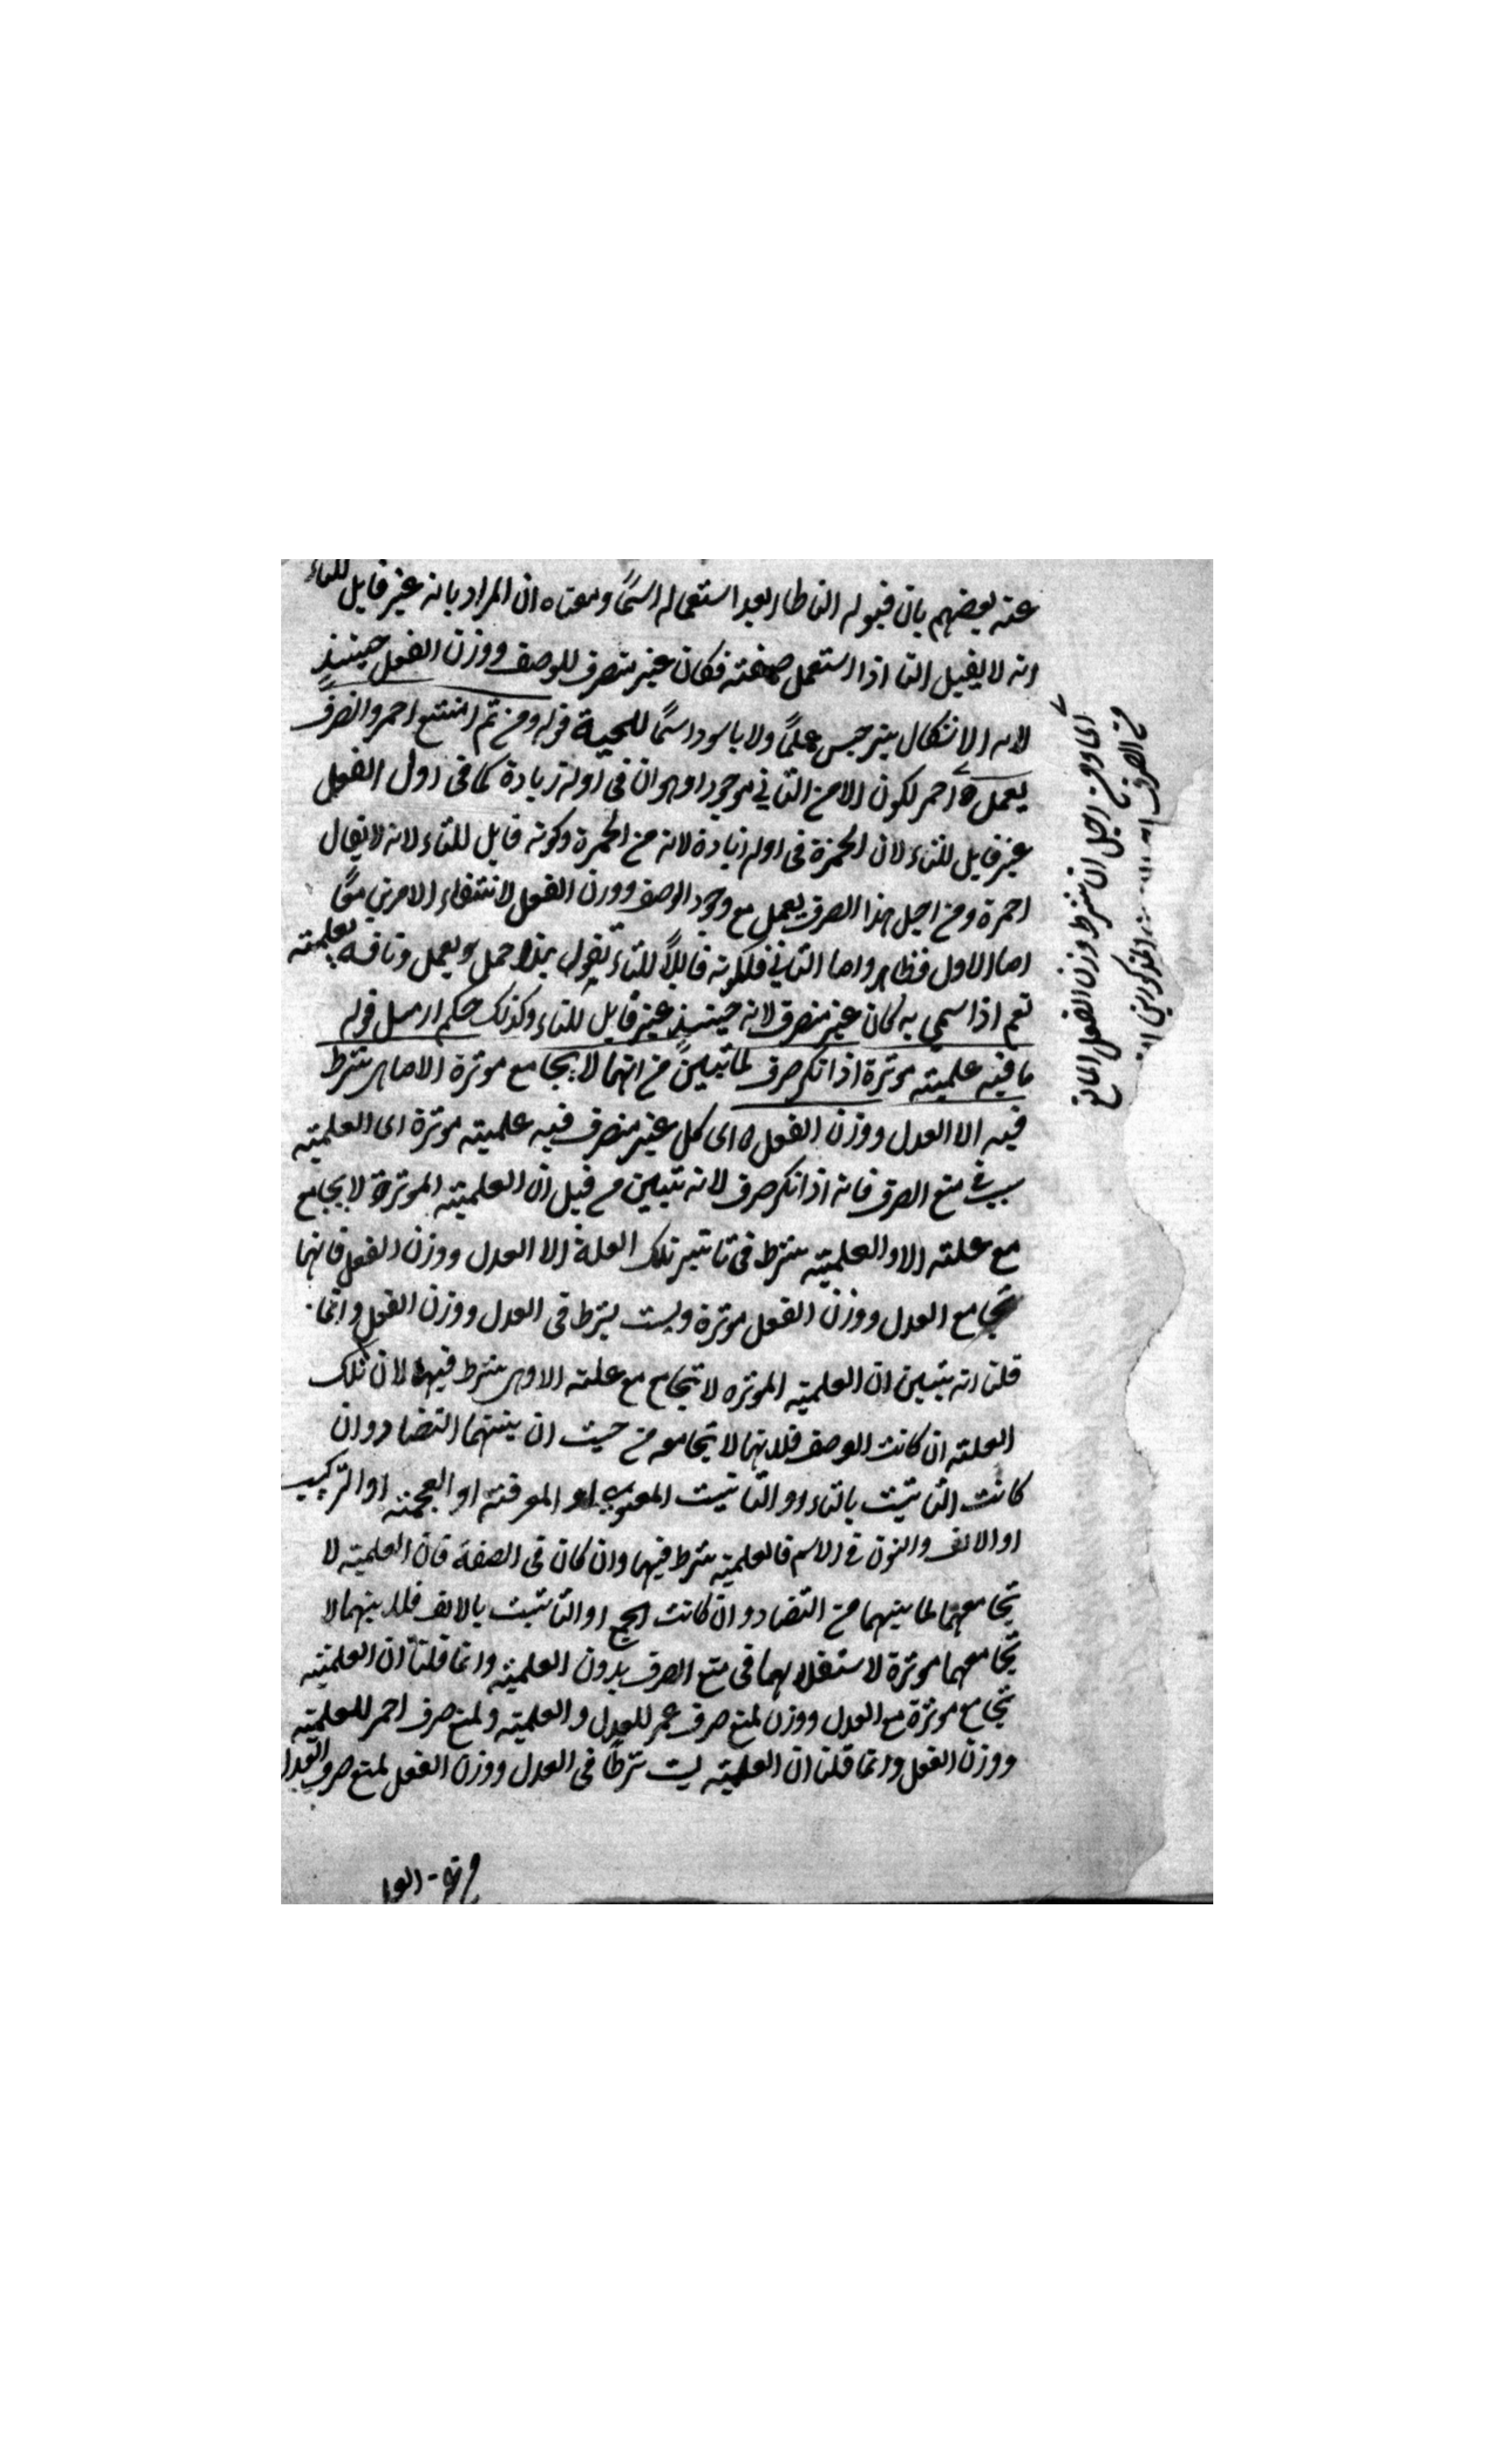 عنه بعضهم بان قبوله التا طار بعد استعماله اسمًا ومعناه ان المراد بانه غير قابل للتاء
انه لا يقبل التا اذا استعمل صفته فكان غير منصرف للوصف ووزن الفعل حينئذ
الاشكال بنرجس علمًا ولا باسود اسمًا للحية قوله ومن ثم امتنع احمر وانصرف
يعمل احمر لكون الامر الثاني موجود او هو ان في اوله زيادة كما في اول الفعل
غير قابل للتاء لان الحمزة في اوله زيادة لانه من الحمرة وكونه قابل للتاء لانه لا يقال
احمرة ومن اجل هذا الصرف يعمل مع وجود الوصف ووزن الفعل لانتفاء الامرين معًا
اما الاول فظاهر واما الثاني فلكونه قابلاً للتاء تقول هذا جمل يعمل وناقة يعلمته
نعم اذا سمي به كان غير منصرف لانه حينئذ غير قابل للتاء وكذلك حكم ارمل قوله
ما فيه علميته موثرة اذا نكر صرف لما تبين من انهما لا يجامع موثرة الا ما هى شرط
فيه الا العدل ووزن الفعل ه اى كل غير منصرف فيه علميته موثرة اى العلميته
سبب في منع الصرف فانه اذا نكر صرف لانه تبين من قبل ان العلميته الموثرة لا يجامع
مع علته الا و العلميته شرط في تاثير تلك العلة الا العدل ووزن الفعل فانهما
تجامع العدل ووزن الفعل موثرة وليست بشرط في العدل ووزن الفعل وانما
قلنا انه يتبين ان العلميته الموثره لا تجامع مع علته الا وهى شرط فيها لان تلك
العلته ان كانت الوصف فلانها لا تجامعه من حيث ان بينهما التضاد وان
كانت التانيث بالتاء او التانيث المعنوي او المعرفته او العجمته او التركيب
او الالف والنون في الاسم فالعلميته شرط فيهما وان كان في الصفة فان العلميته لا
تجامعهما لما بينهما من التضاد وان كانت الجمع او التانيث بالالف فلانهما لا
تجامعهما موثرة لاستقلالهما في منع الصرف بدون العلميته وانما قلنا ان العلميته
تجامع موثرة مع العدل ووزن لمنع صرف عمر للعدل و العلميته ولمنع صرف احمر للعلميته
ووزن الفعل وانما قلنا ان العلميته ليست شرطًا في العدل ووزن الفعل لمنع صرف العدل
اى ومن اجل ان شرط وزن الفعل المانع
من الصرف
المذكورين